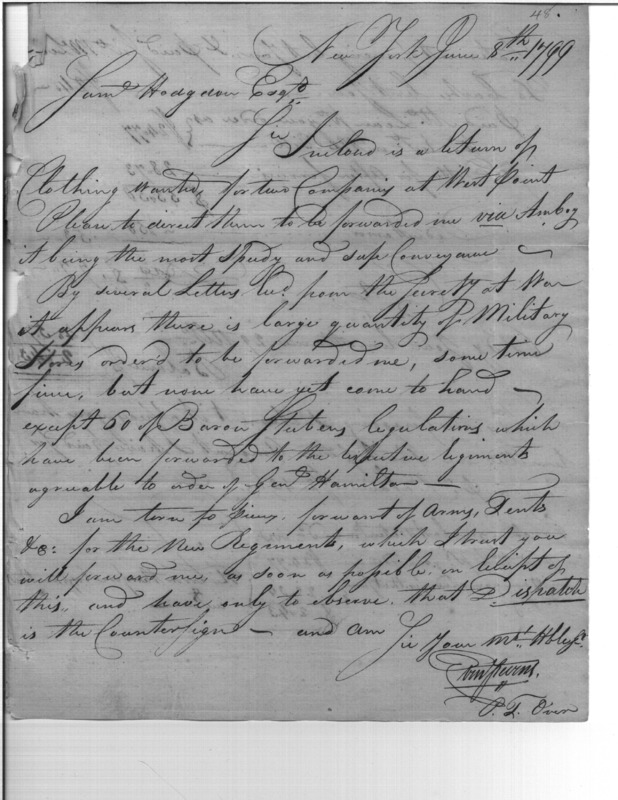 48.
New York June 8th 1799
Saml Hodgdon Esqr
Sir Inclosd is a Return of
Clothing wanted, for two Companies at West Point
Please to direct them to be forwarded me via Amboy
it being the most speedy and safe Conveyance
By several Letters Recd from the Secrety at War
it appears there is large quantity of Military
Stores orderd to be forwarded me, some time
since, but none have yet come to hand —
except 60 of Baron Stubens Regulations which
have been forwarded to the respective Regiments
agreable to order of Genl Hamilton —
I am torn to pieces, for want of Arms, Tents
&c: for the New Regiments, which I trust you
will forward me as soon as possible on Receipt of
this, and have only to observe that Dispatch
is the Countersign — and am Sir Your Mt. Hble St.
P. T. Over